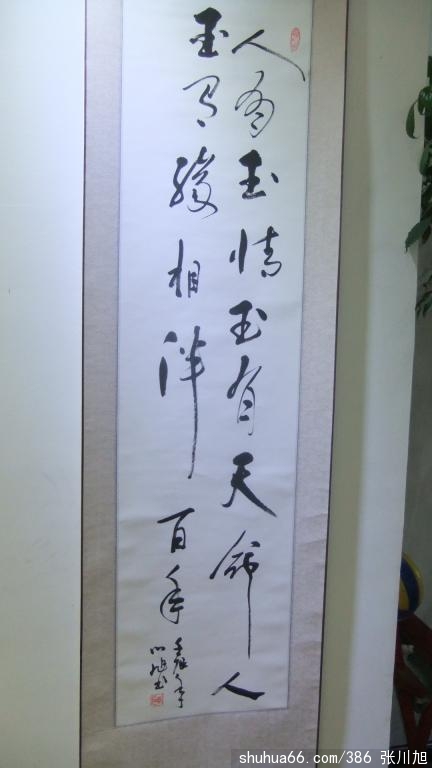 人有玉情玉有天命人
玉有缘相伴百年
壬辰年
川旭书
shuhua66.com/386 张川旭